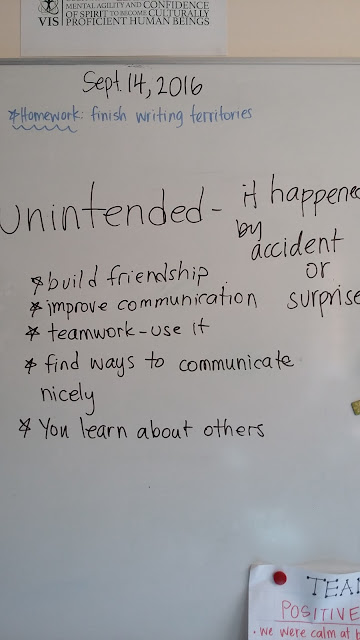 MENTAL AGILITY AND CONFIDENCE
VIS OF SPIRIT TO BECOME CULTURALLY
PROFICIENT HUMAN BEINGS
Sept. 14, 2016
*Homework: finish writing territories
unintended - it happened
by
accident
or
surprise
* build friendship
* improve communication
* teamwork - use it
* find ways to communicate
nicely
* You learn about others
TEA
POSITIVE
• we were calm at